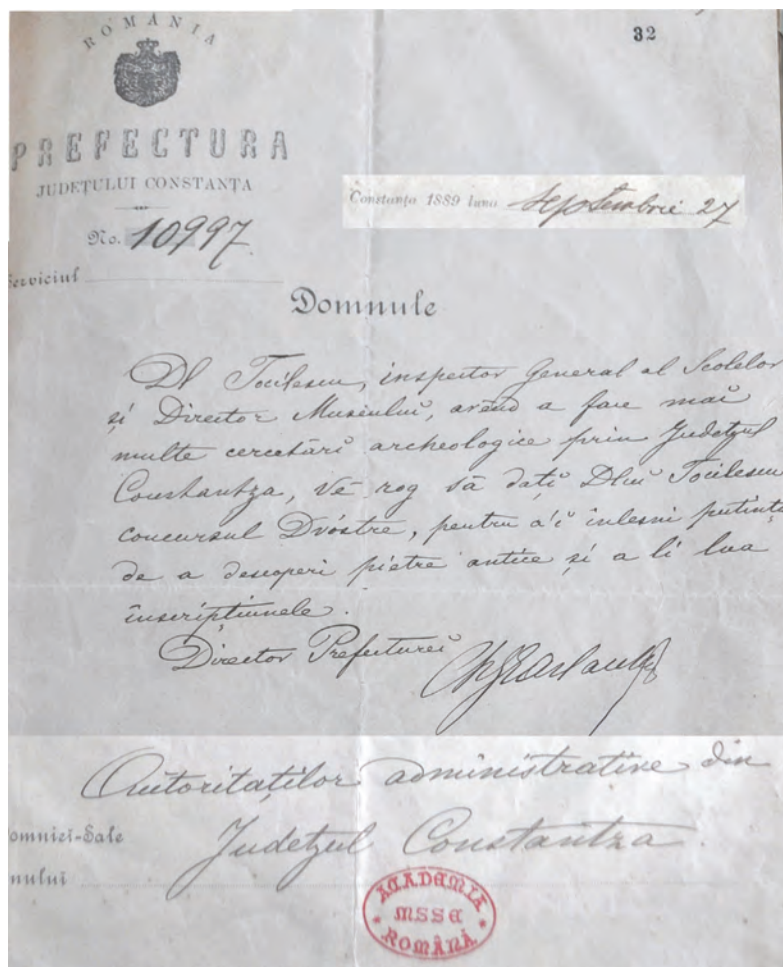 32
ROMANIA
PREFECTURA
JUDEȚULUI CONSTANȚA
No. 10997.
Constanța 1889 luna Septembrie 27
Serviciul
Domnule
Dl Tocilescu, inspector General al Scolelor
și Director Museului, avênd a face mai
multe cercetări archeologice prin Județul
Constantza, Vĕ rog să dați Dlui Tocilescu
concursul Dvóstre, pentru a'i înlesni putința
de a descoperi pietre antice și a li lua
înscripțiunele.
Director Prefecturei
Autorităților administrative din
omniei-Sale Județul Constantza.
nului
ACADEMIA
MSSE
ROMÂNĂ